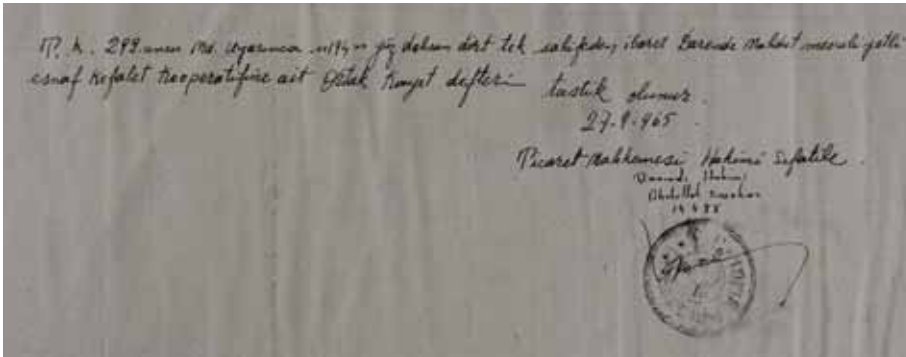 T. K. 299.uncu md. uyarınca "194" yüz doksan dört tek sahifeden ibaret Darende Mahdut mesuliyetli
esnaf Kefalet Kooperatifine ait Ortak Kayıt defteri tastik olunur.
27.9.965
Ticaret Mahkemesi Hakimi Sıfatile.
Darende Hakimi
Abdullah